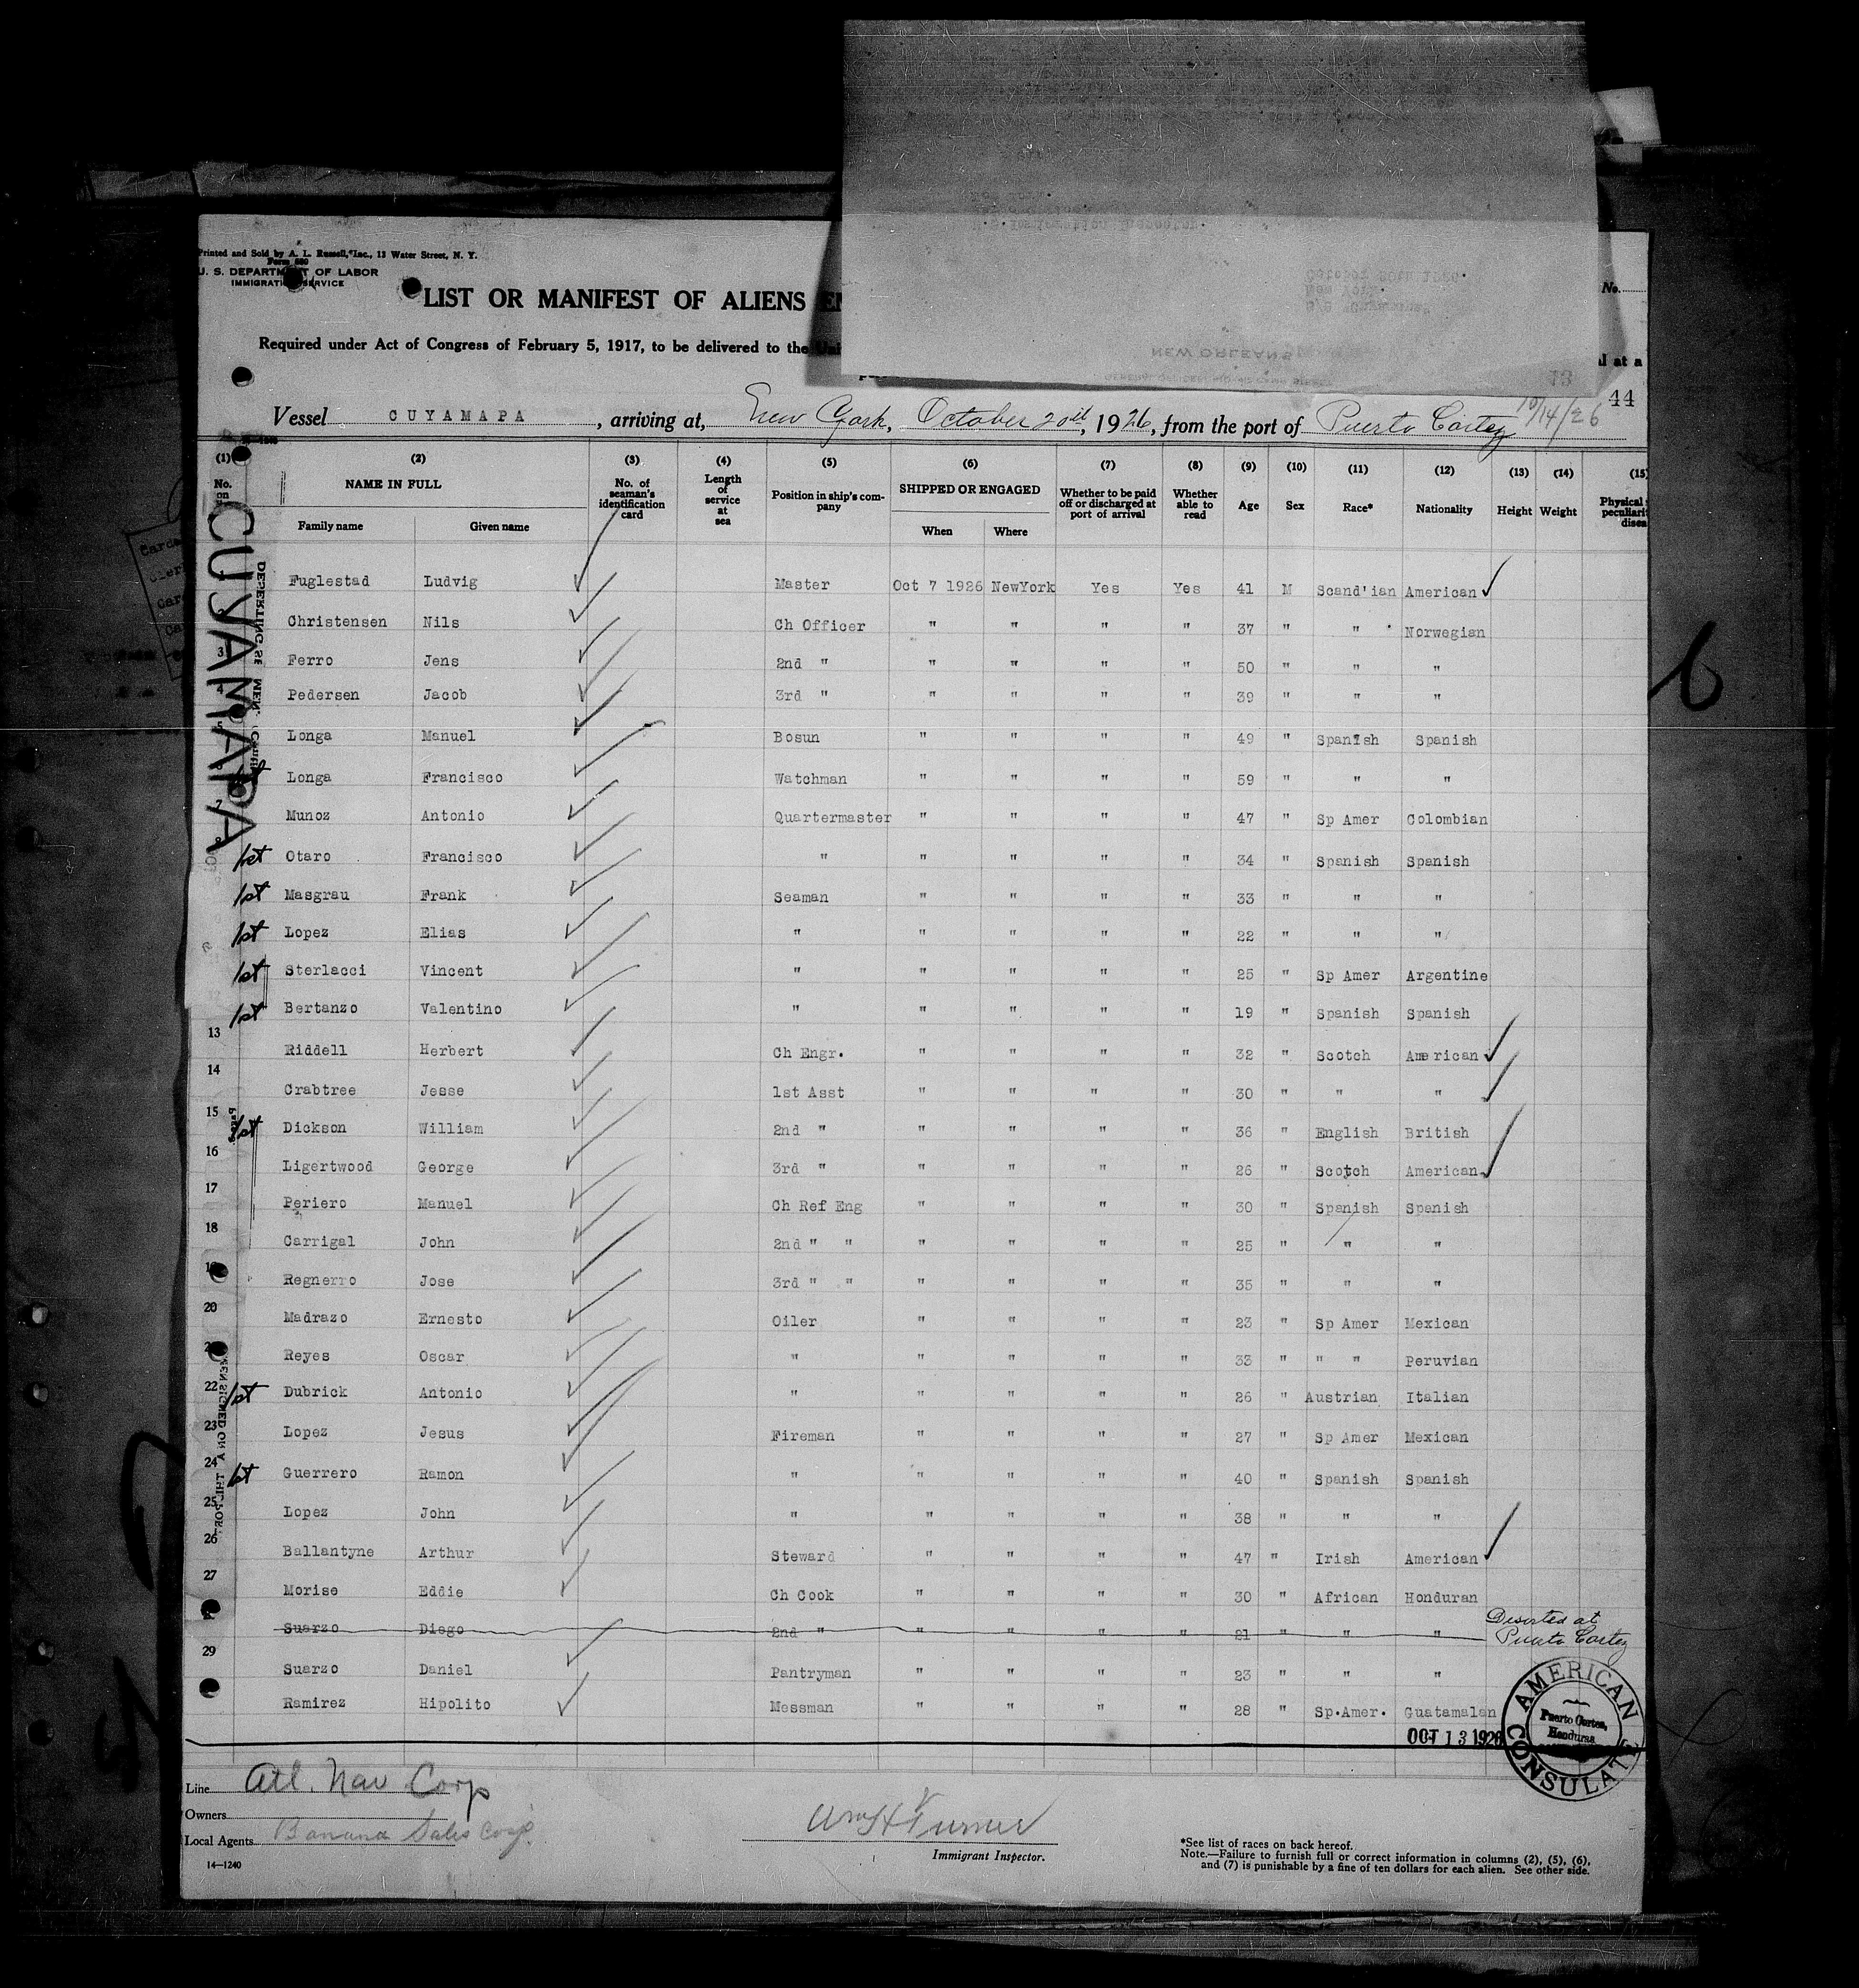 Printed and Sold by A. L. Russell, Inc., 13 Water Street, N. Y.
Form 680
U. S. DEPARTMENT OF LABOR
IMMIGRATION SERVICE
No.
LIST OR MANIFEST OF ALIENS EM
Required under Act of Congress of February 5, 1917, to be delivered to the Uni
l at a
13
44
10/14/26
Vessel CUYAMAPA, arriving at, New York, October 20th, 1926, from the port of Puerto Cortez
(1) (2) (3) (4) (5) (6) (7) (8) (9) (10) (11) (12) (13) (14) (15)
No. on
NAME IN FULL
Family name Given name
No. of seaman's identification card
Length of service at sea
Position in ship's company
SHIPPED OR ENGAGED
When Where
Whether to be paid off or discharged at port of arrival
Whether able to read
Age Sex Race* Nationality Height Weight
Physical peculiarit disea
CUYAMAPA
Fuglestad Ludvig Master Oct 7 1926 NewYork Yes Yes 41 M Scand'ian American
Christensen Nils Ch Officer " " " " 37 " " Norwegian
3 Ferro Jens 2nd " " " " " 50 " " "
4 Pedersen Jacob 3rd " " " " " 39 " " "
5 Longa Manuel Bosun " " " " 49 " Spanish Spanish
Longa Francisco Watchman " " " " 59 " " "
7 Munoz Antonio Quartermaster " " " " 47 " Sp Amer Colombian
1st Otaro Francisco " " " " " 34 " Spanish Spanish
1st Masgrau Frank Seaman " " " " 33 " " "
1st Lopez Elias " " " " " 22 " " "
1st Sterlacci Vincent " " " " " 25 " Sp Amer Argentine
1st Bertanzo Valentino " " " " " 19 " Spanish Spanish
13 Riddell Herbert Ch Engr. " " " " 32 " Scotch American
14 Crabtree Jesse 1st Asst " " " " 30 " " "
15 1st Dickson William 2nd " " " " " 36 " English British
16 Ligertwood George 3rd " " " " " 26 " Scotch American
17 Periero Manuel Ch Ref Eng " " " " 30 " Spanish Spanish
18 Carrigal John 2nd " " " " " " 25 " " "
19 Regnerro Jose 3rd " " " " " " 35 " " "
20 Madrazo Ernesto Oiler " " " " 23 " Sp Amer Mexican
Reyes Oscar " " " " " 33 " " " Peruvian
22 1st Dubrick Antonio " " " " " 26 " Austrian Italian
23 Lopez Jesus Fireman " " " " 27 " Sp Amer Mexican
24 1st Guerrero Ramon " " " " " 40 " Spanish Spanish
25 Lopez John " " " " " 38 " " "
26 Ballantyne Arthur Steward " " " " 47 " Irish American
27 Morise Eddie Ch Cook " " " " 30 " African Honduran
Suarzo Diego 2nd " " " " " 21 " " " Deserted at Puerto Cortez
29 Suarzo Daniel Pantryman " " " " 23 " " "
Ramirez Hipolito Messman " " " " 28 " Sp.Amer. Guatamalan
OCT 13 1926
AMERICAN CONSULATE
Puerto Cortes, Honduras
Line Atl. Nav Corp
Owners
Local Agents Banana Sales Corp.
14—1240
Wm H Turner
Immigrant Inspector.
*See list of races on back hereof.
Note.—Failure to furnish full or correct information in columns (2), (5), (6),
and (7) is punishable by a fine of ten dollars for each alien. See other side.